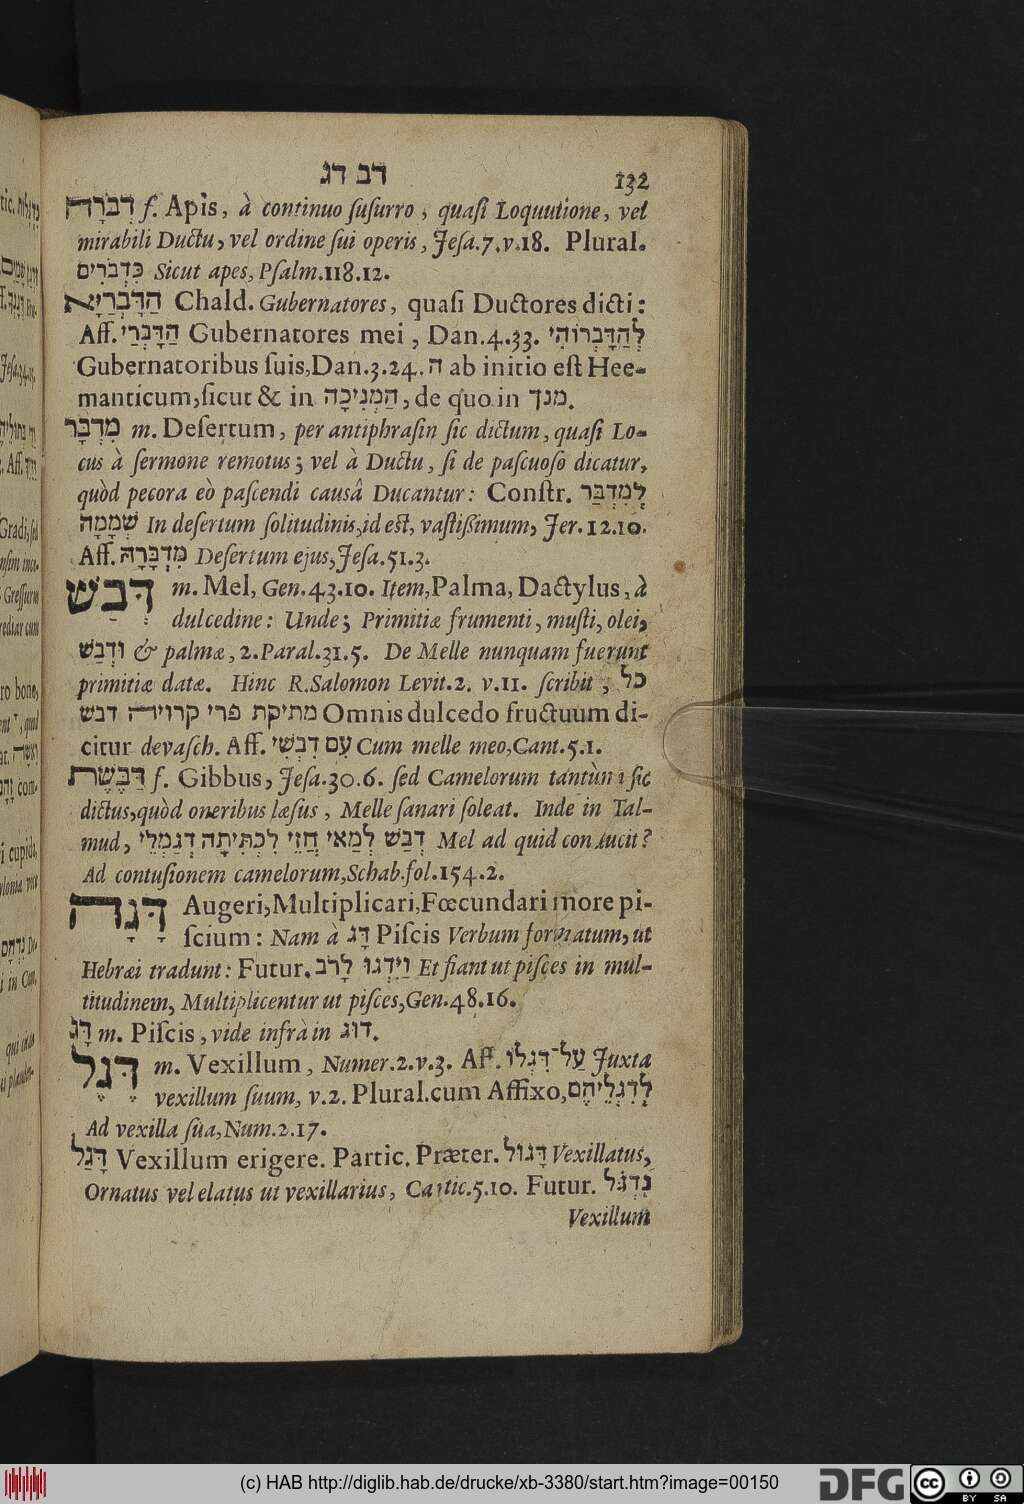 דב דג 132
דְּבֹרָה f. Apis, à continuo ſuſurro, quaſi Loquutione, vel
mirabili Ductu, vel ordine ſui operis, Jeſa.7.v.18. Plural.
כִּדְבֹרִים Sicut apes, Pſalm.118.12.
הַדָּבְרַיָּא Chald. Gubernatores, quaſi Ductores dicti:
Aff. הַדָּבְרַי Gubernatores mei, Dan.4.33. לְהַדָּבְרוֹהִי
Gubernatoribus ſuis,Dan.3.24. ה ab initio eſt Hee-
manticum,ſicut & in הַמְנִיכָה, de quo in מנך.
מִדְבָּר m. Deſertum, per antiphraſin ſic dictum, quaſi Lo-
cus à ſermone remotus; vel à Ductu, ſi de paſcuoſo dicatur,
quòd pecora eò paſcendi causâ Ducantur: Conſtr. לְמִדְבַּר
שְׁמָמָה In deſertum ſolitudinis,id eſt, vaſtiſſimum, Jer.12.10.
Aff. מִדְבָּרָהּ Deſertum ejus,Jeſa.51.3.
דְּבַשׁ m. Mel, Gen.43.10. Item,Palma, Dactylus, à
dulcedine: Unde; Primitiæ frumenti, muſti, olei,
וּדְבַשׁ & palmæ, 2.Paral.31.5. De Melle nunquam fuerunt
primitiæ datæ. Hinc R.Salomon Levit.2. v.11. ſcribit, כל
מתיקת פרי קרויה דבש Omnis dulcedo fructuum di-
citur devaſch. Aff. עִם דִּבְשִׁי Cum melle meo,Cant.5.1.
דַּבֶּשֶׁת f. Gibbus, Jeſa.30.6. ſed Camelorum tantùm ſic
dictus,quòd oneribus læſus, Melle ſanari ſoleat. Inde in Tal-
mud, דְּבַשׁ לְמַאי חֲזֵי לִכְתִּיתָה דְגַמְלֵי Mel ad quid conducit?
Ad contuſionem camelorum,Schab.fol.154.2.
דָּגָה Augeri,Multiplicari,Fœcundari more pi-
ſcium: Nam à דָּג Piſcis Verbum formatum, ut
Hebræi tradunt: Futur. וְיִדְגּוּ לָרֹב Et fiant ut piſces in mul-
titudinem, Multiplicentur ut piſces,Gen.48.16.
דָּג m. Piſcis, vide infrà in דוג.
דֶּגֶל m. Vexillum, Numer.2.v.3. Aff. עַל־דִּגְלוֹ Juxta
vexillum ſuum, v.2. Plural.cum Affixo, לְדִגְלֵיהֶם
Ad vexilla ſua,Num.2.17.
דָּגַל Vexillum erigere. Partic. Præter. דָּגוּל Vexillatus,
Ornatus vel elatus ut vexillarius, Cantic.5.10. Futur. נִדְגֹּל
Vexillum
(c) HAB http://diglib.hab.de/drucke/xb-3380/start.htm?image=00150
DFG
cc BY SA